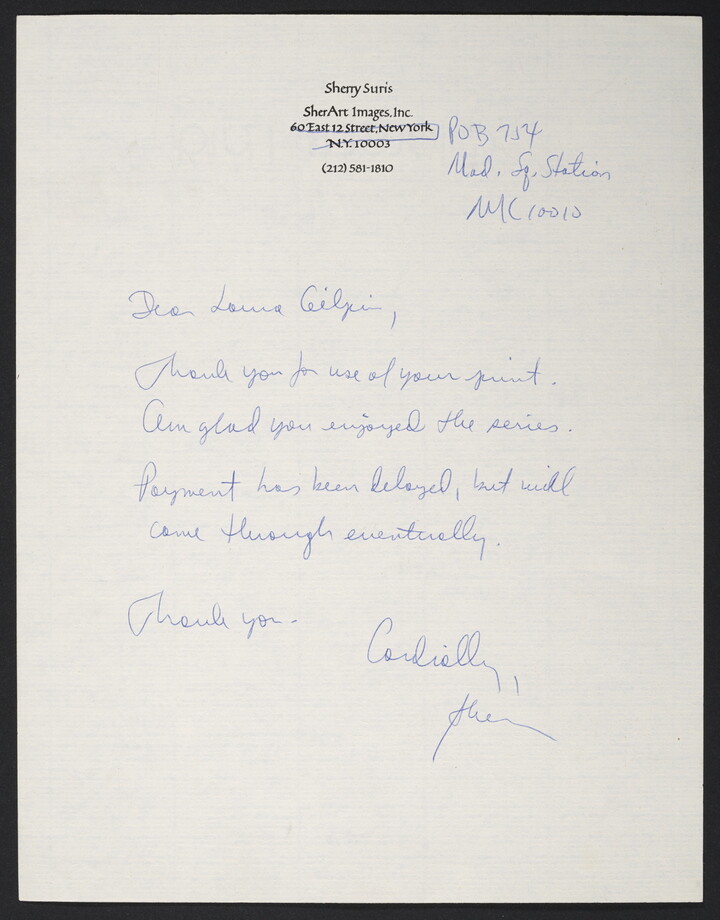 Sherry Suris
SherArt Images, Inc.
60 East 12 Street, New York
N.Y. 10003
(212) 581-1810
POB 754
Mad. Sq. Station
NYC 10010
Dear Lorna Gilpin,
Thank you for use of your print.
Am glad you enjoyed the series.
Payment has been delayed, but will
come through eventually.
Thank you.
Cordially,